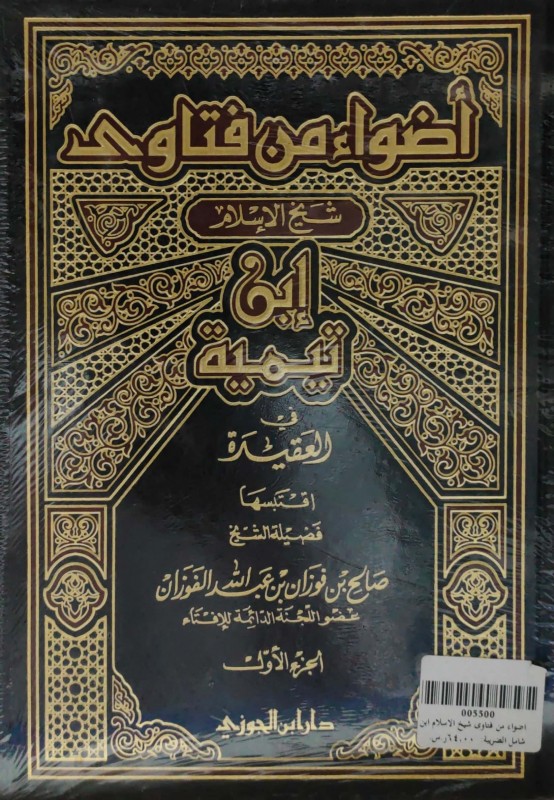 أضواء من فتاوى
شيخ الإسلام
إبن
تيمية
في
العقيدة
اقتبسها
فضيلة الشيخ
صالح بن فوزان بن عبد الله الفوزان
عضو اللجنة الدائمة للإفتاء
الجزء الأول
دار ابن الجوزي
005500
اضواء من فتاوى شيخ الاسلام ابن
شامل الضريبة ٦٤,٠٠ر.س